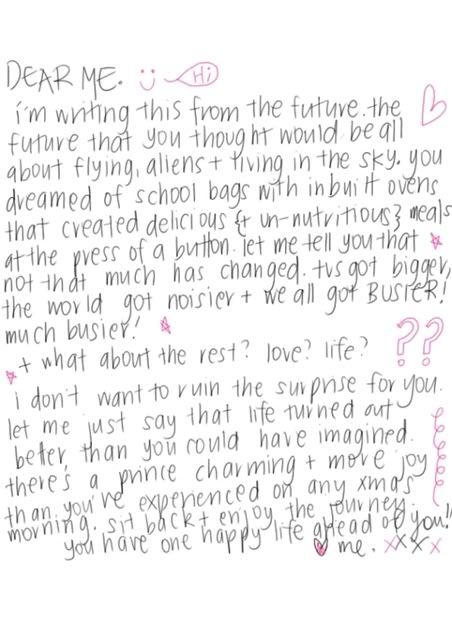 DEAR ME. Hi
i'm writing this from the future. the
future that you thought would be all
about flying, aliens + living in the sky. you
dreamed of school bags with inbuilt ovens
that created delicious {+ un-nutritious} meals
at the press of a button. let me tell you that
not that much has changed. tvs got bigger,
the world got noisier + we all got BUSIER!
much busier!
+ what about the rest? love? life? ??
i don't want to ruin the surprise for you.
let me just say that life turned out
better, than you could have imagined.
there's a prince charming + more joy
than you've experienced on any xmas
morning. sit back + enjoy the journey.
you have one happy life ahead of you!!
me. xxxx